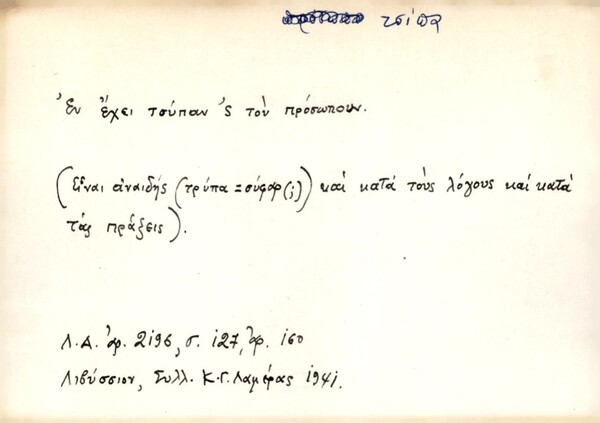 τσίπα
Ἐν ἔχει τσύπαν 'ς τὸν πρόσωπουν.
(Εἶναι ἀναιδής (τρύπα = σύφαρ(;)) καὶ κατὰ τοὺς λόγους καὶ κατὰ
τὰς πράξεις).
Λ.Α. ἀρ. 2196, σ. 127, ἀρ. 160
Λιβύσσιον, Συλλ. Κ.Γ. Λαμέρας 1941.